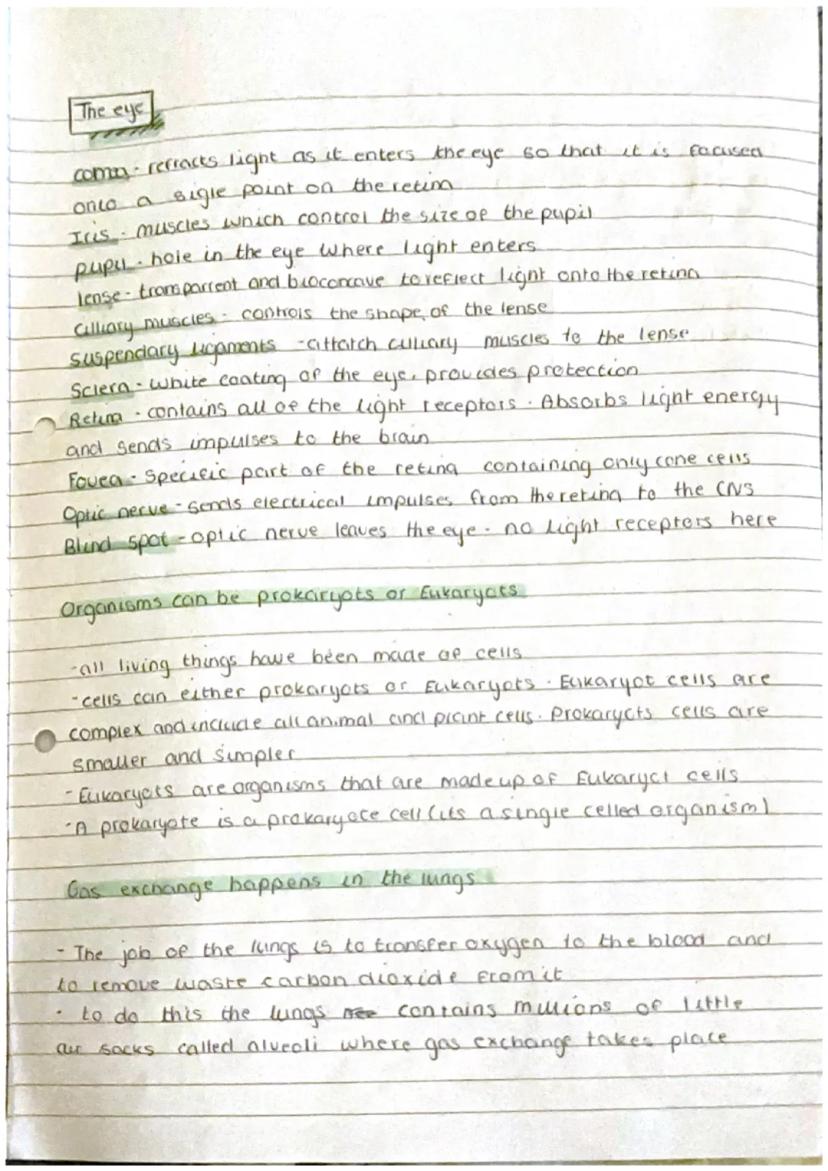 The eye
cornea - refracts light as it enters the eye so that it is focused
onto a sigle point on the retina
Iris - muscles which control the size of the pupil
pupil - hole in the eye where light enters
lense - transparrent and bioconcave to reflect light onto the retina
Cilliary muscles - controls the shape of the lense
Suspendary ligaments - attatch cilliary muscles to the lense
Sclera - white coating of the eye, provides protection
Retina - contains all of the light receptors. Absorbs light energy
and sends impulses to the brain
Fovea - Specific part of the retina containing only cone cells
Optic nerve - sends electrical impulses from the retina to the CNS
Blind spot - optic nerve leaves the eye - no light receptors here
Organisms can be prokaryots or Eukaryots
- all living things have been made of cells
- cells can either prokaryots or Eukaryots. Eukaryot cells are
complex and include all animal and plant cells. Prokaryots cells are
smaller and simpler
- Eukaryots are organisms that are made up of Eukaryot cells
- A prokaryote is a prokaryote cell (its a single celled organism)
Gas exchange happens in the lungs
- The job of the lungs is to transfer oxygen to the blood and
to remove waste carbon dioxide from it
- to do this the lungs contains millions of little
air sacks called alveoli where gas exchange takes place